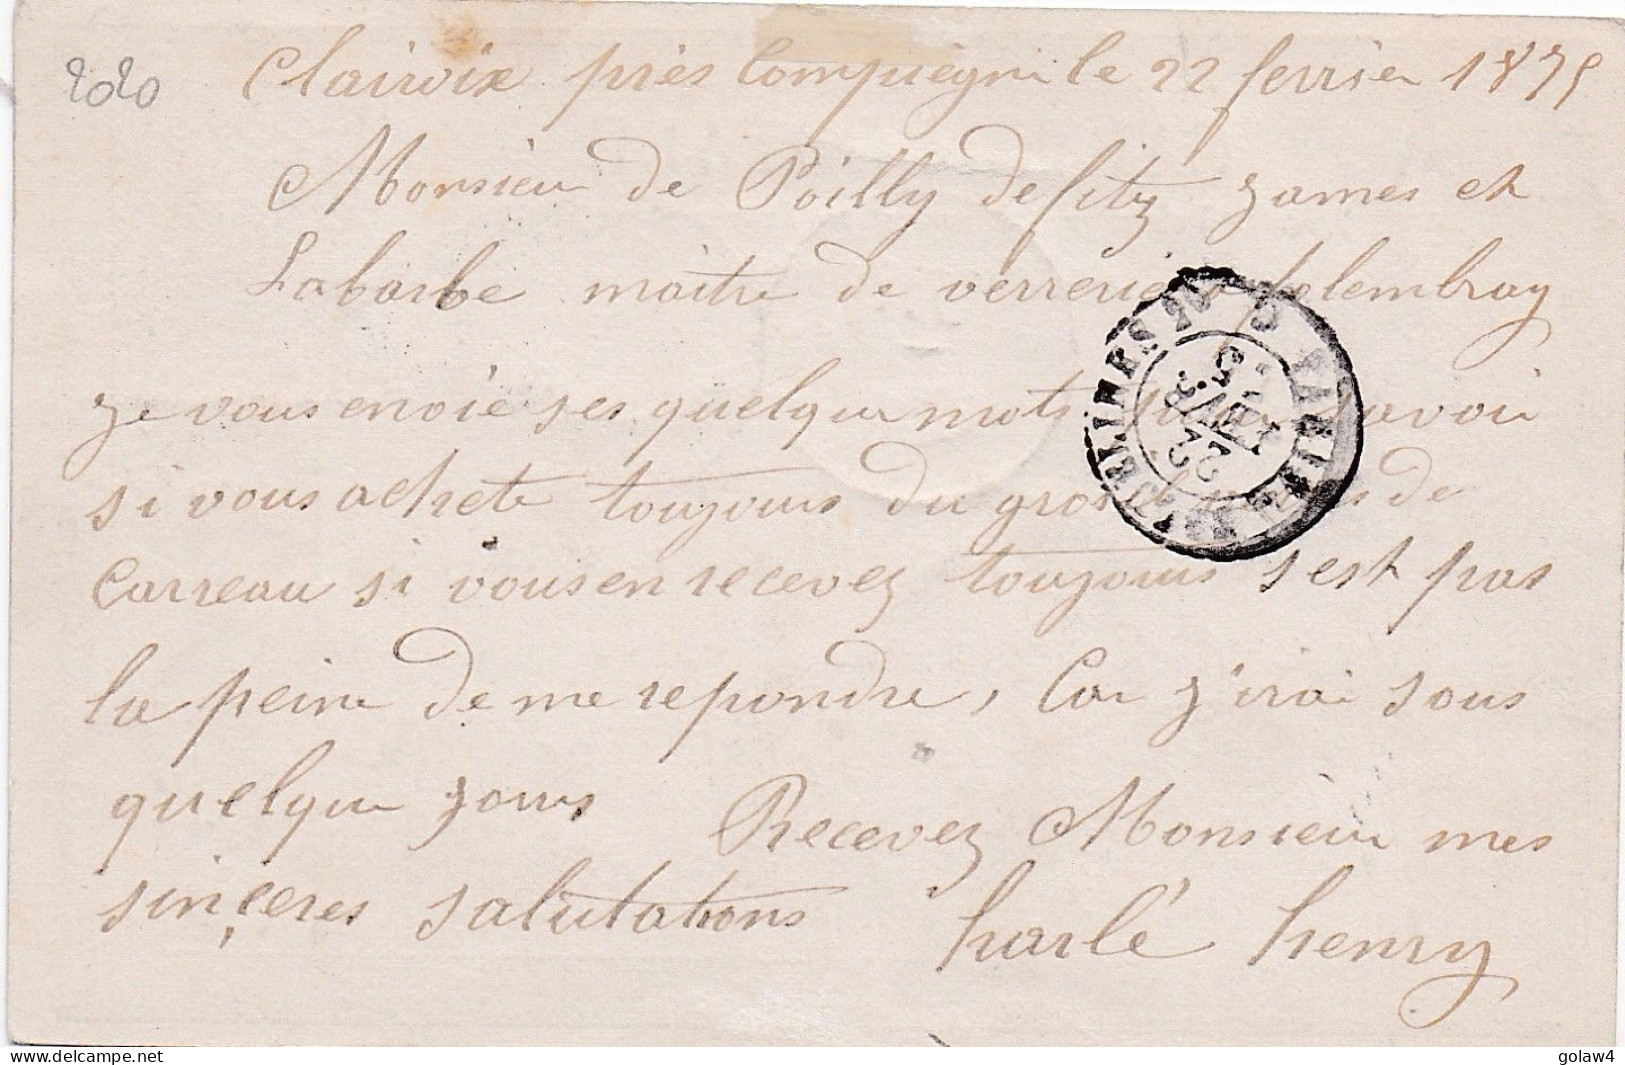 2020
Clairoix près Compiegne le 22 fevrier 1875
Monsieur de Poilly de fitz james et
Labarbe maitre de verreries folembray
je vous envoie ses quelque mots pour savoir
si vous achete toujours du grosil de
Carreau si vous en recevez toujours s est pas
la peine de me repondre, Car j'irai sous
quelque jours Recevez Monsieur mes
sinçeres salutations harlé henry
PARIS
22
FEVR.
75
delcampe.net
golaw4